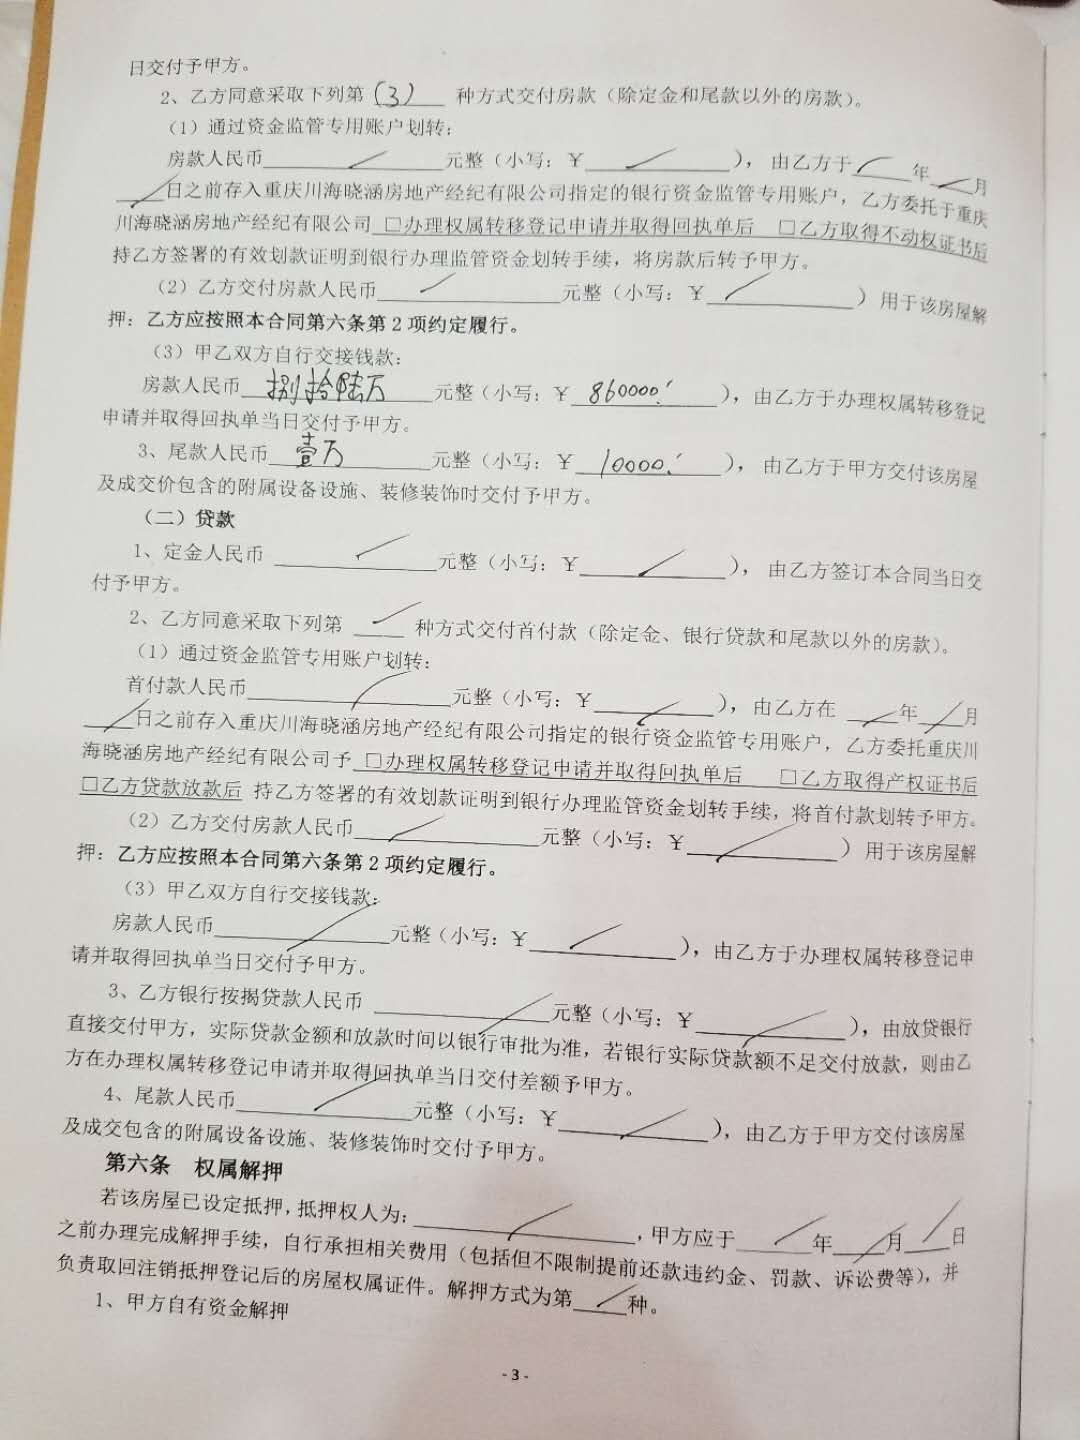 日交付予甲方。
2、乙方同意采取下列第 (3) 种方式交付房款（除定金和尾款以外的房款）。
（1）通过资金监管专用账户划转：
房款人民币 / 元整（小写：￥ / ），由乙方于 / 年 / 月
/ 日之前存入重庆川海晓涵房地产经纪有限公司指定的银行资金监管专用账户，乙方委托于重庆
川海晓涵房地产经纪有限公司 □办理权属转移登记申请并取得回执单后 □乙方取得不动权证书后
持乙方签署的有效划款证明到银行办理监管资金划转手续，将房款后转予甲方。
（2）乙方交付房款人民币 / 元整（小写：￥ / ）用于该房屋解
押：乙方应按照本合同第六条第2项约定履行。
（3）甲乙双方自行交接钱款：
房款人民币 捌拾陆万 元整（小写：￥ 860000. ），由乙方于办理权属转移登记
申请并取得回执单当日交付予甲方。
3、尾款人民币 壹万 元整（小写：￥ 10000. ），由乙方于甲方交付该房屋
及成交价包含的附属设备设施、装修装饰时交付予甲方。
（二）贷款
1、定金人民币 / 元整（小写：￥ / ），由乙方签订本合同当日交
付予甲方。
2、乙方同意采取下列第 / 种方式交付首付款（除定金、银行贷款和尾款以外的房款）。
（1）通过资金监管专用账户划转：
首付款人民币 / 元整（小写：￥ / ），由乙方在 / 年 / 月
/ 日之前存入重庆川海晓涵房地产经纪有限公司指定的银行资金监管专用账户，乙方委托重庆川
海晓涵房地产经纪有限公司予 □办理权属转移登记申请并取得回执单后 □乙方取得产权证书后
□乙方贷款放款后 持乙方签署的有效划款证明到银行办理监管资金划转手续，将首付款划转予甲方。
（2）乙方交付房款人民币 / 元整（小写：￥ / ）用于该房屋解
押：乙方应按照本合同第六条第2项约定履行。
（3）甲乙双方自行交接钱款：
房款人民币 / 元整（小写：￥ / ），由乙方于办理权属转移登记申
请并取得回执单当日交付予甲方。
3、乙方银行按揭贷款人民币 / 元整（小写：￥ / ），由放贷银行
直接交付甲方，实际贷款金额和放款时间以银行审批为准，若银行实际贷款额不足交付放款，则由乙
方在办理权属转移登记申请并取得回执单当日交付差额予甲方。
4、尾款人民币 / 元整（小写：￥ / ），由乙方于甲方交付该房屋
及成交包含的附属设备设施、装修装饰时交付予甲方。
第六条 权属解押
若该房屋已设定抵押，抵押权人为： / ，甲方应于 / 年 / 月 / 日
之前办理完成解押手续，自行承担相关费用（包括但不限制提前还款违约金、罚款、诉讼费等），并
负责取回注销抵押登记后的房屋权属证件。解押方式为第 / 种。
1、甲方自有资金解押
- 3 -